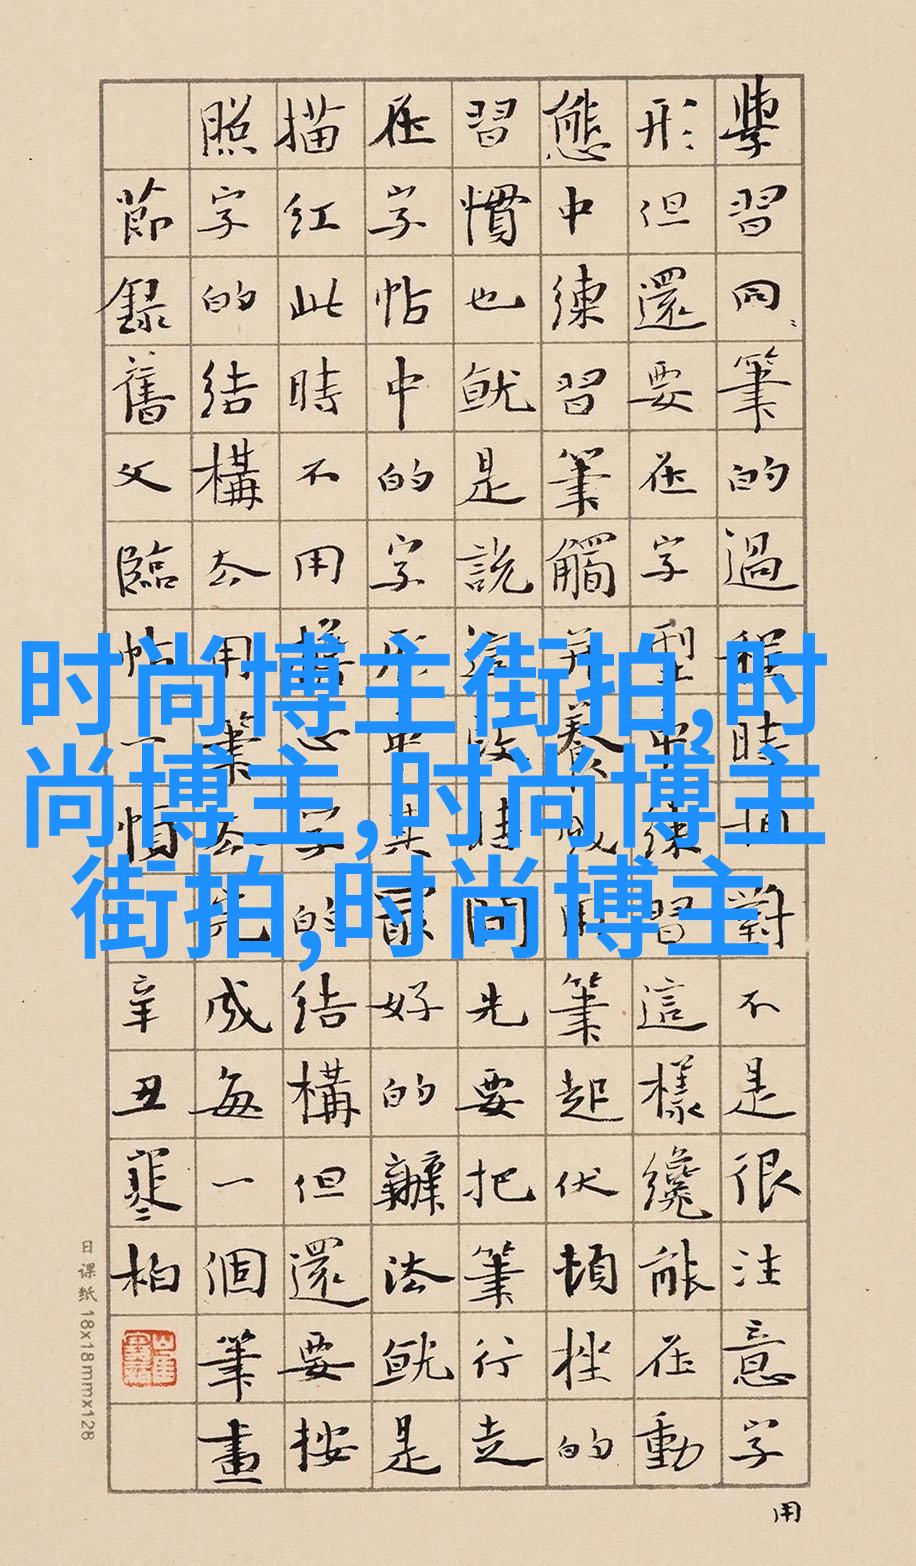 學習同筆的過程時相對不是很注意字
形但還要在字型練習這樣纔能在動
態中練習筆觸并養成用筆起伏頓挫的
習慣也就是說這段時間先要把筆行走
在字帖中的字形其最好的辦法就是
描紅此時不用擔心字的結構但還要按
照字的結構去用筆去完成每一個筆畫
節錄舊文臨帖一辛丑寒柏
用
日课纸 18x18mmx128
时尚博主街拍,时
尚博主,时尚博主
街拍,时尚博主